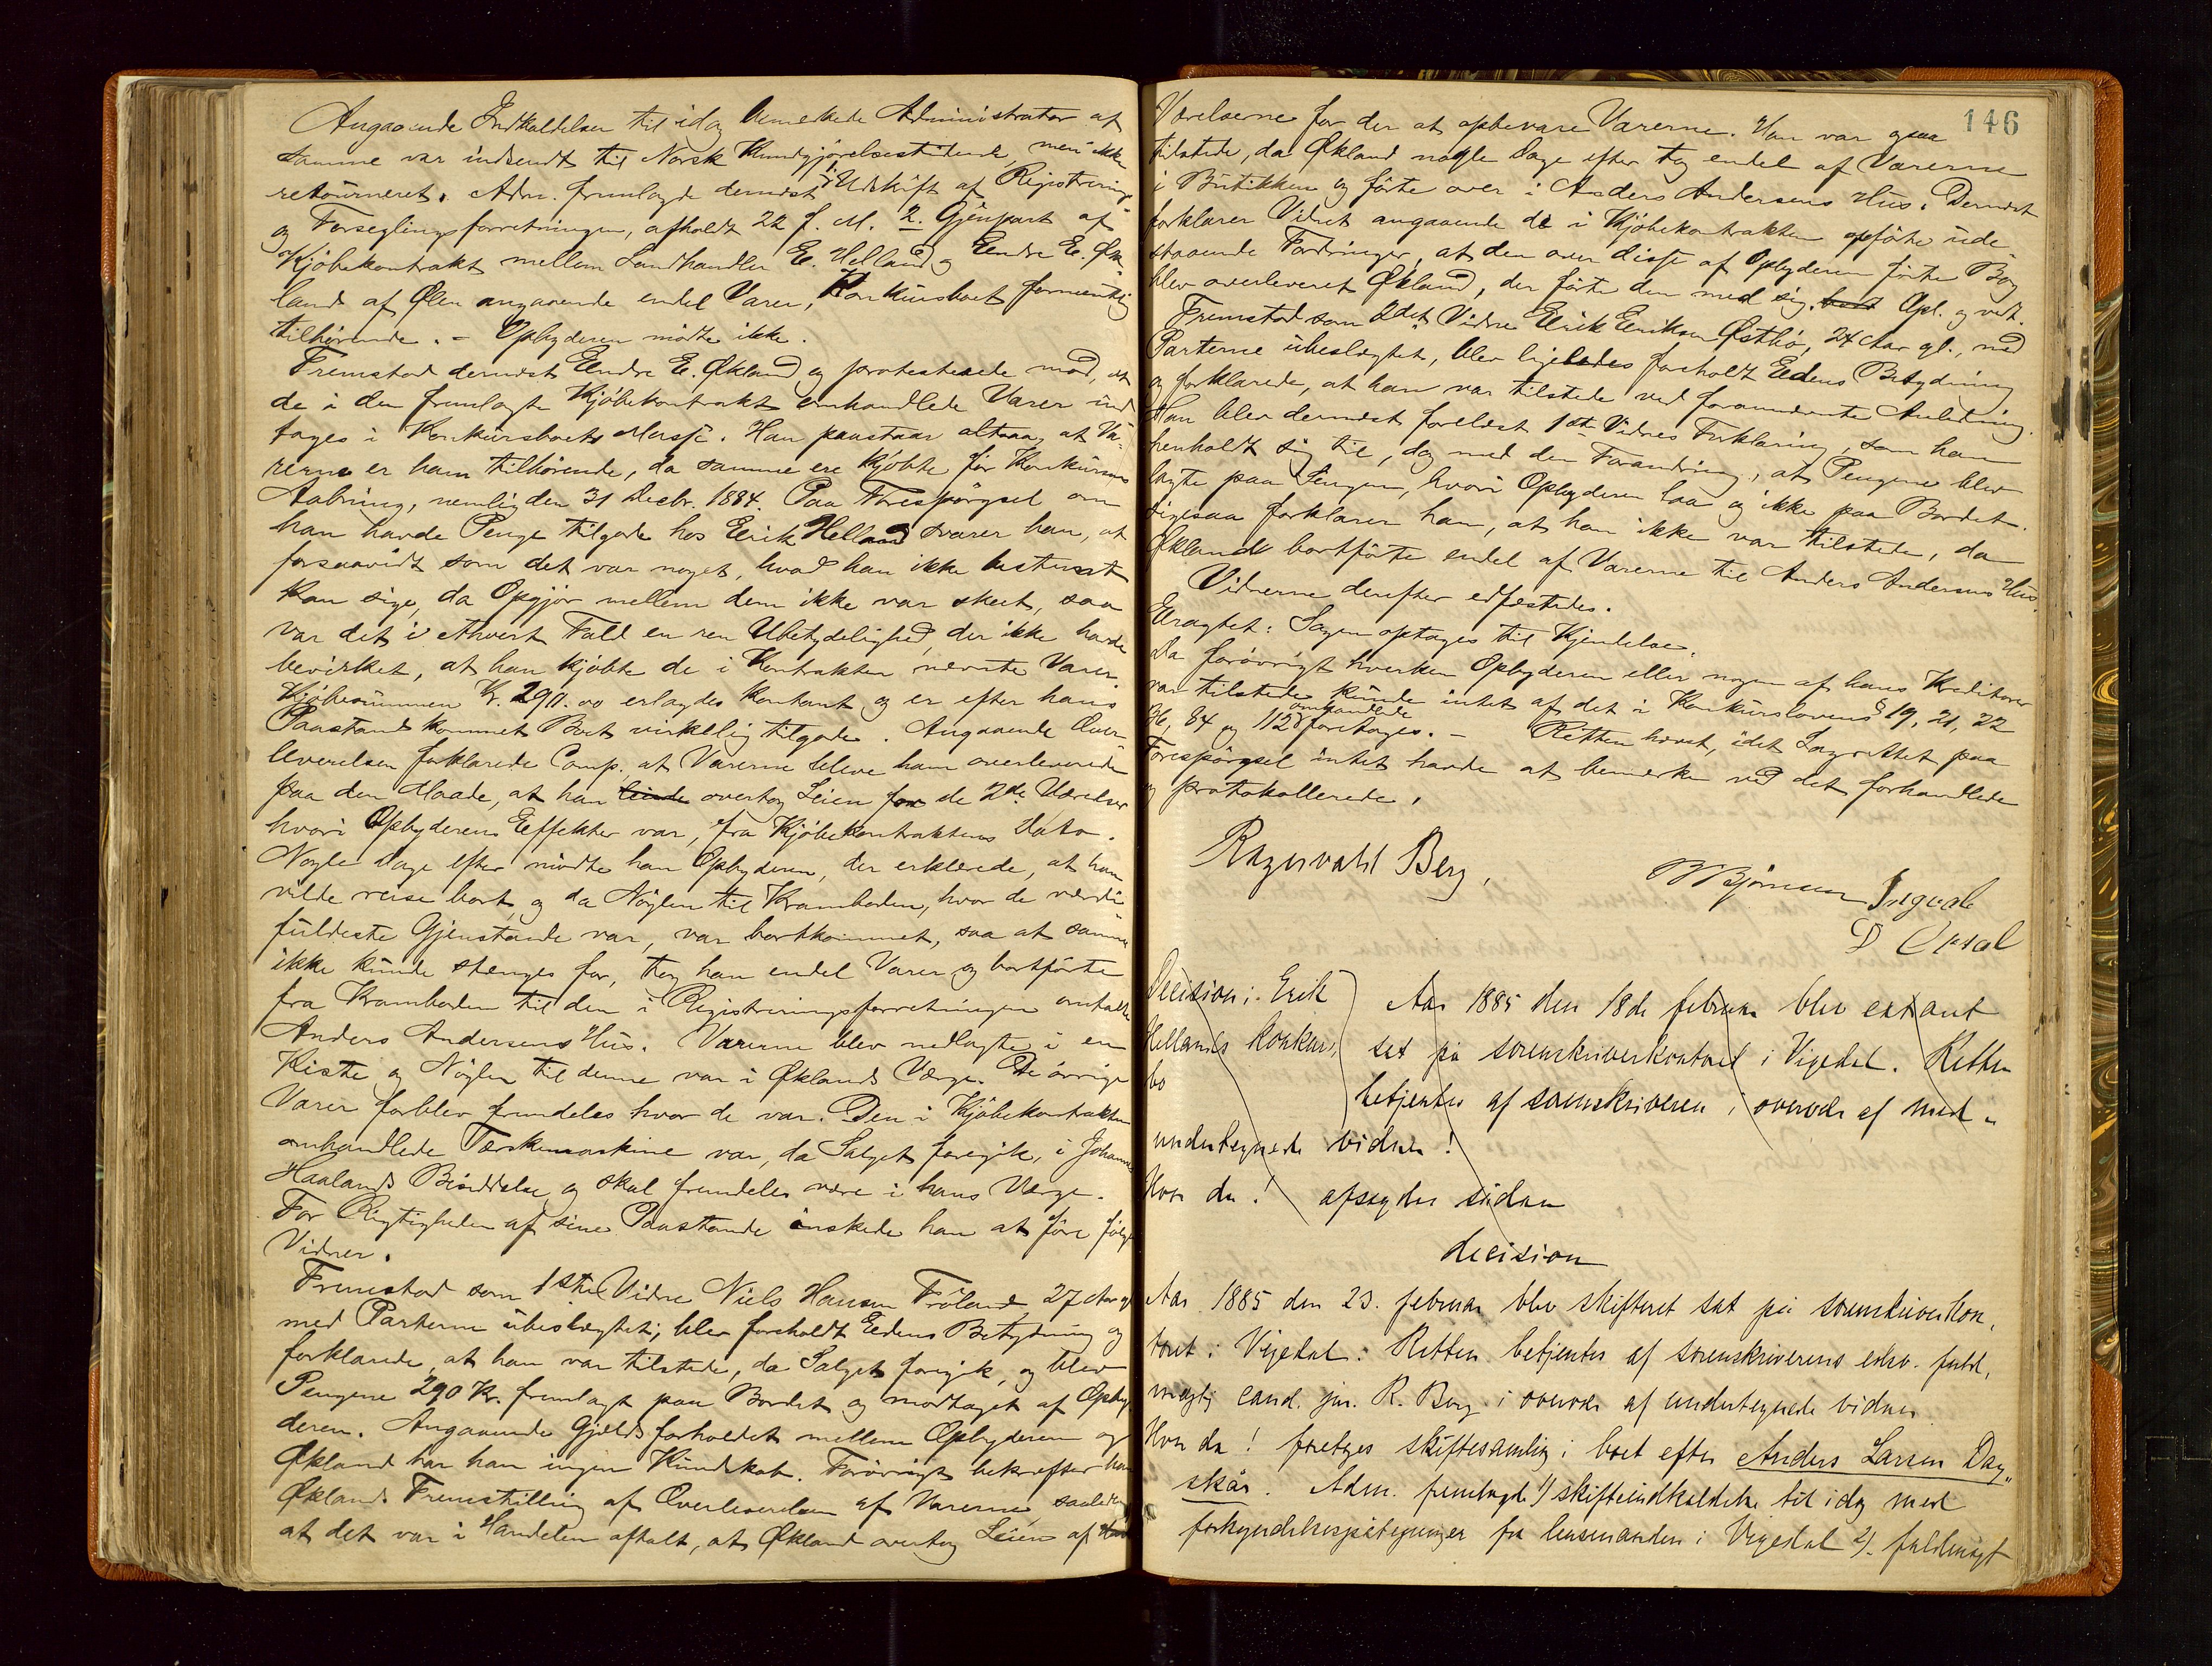 Angaaende Indkaldelsen til idag bemerkede Administrator at
samme var indsendt til Norsk Kundgjørelsestidende, men ikke
retourneret. Adm. fremlagde dernæst 1. Udskrift af Registrerings
og Forseglingsforretningen, afholdt 22 f. M. 2. Gjenpart af
Kjöbekontrakt mellem Landhandler E. Helland og Endre E. Øk
land af Ølen angaaende endel Varer, Konkursboet formentlig
tilhørende. - Opbyderen mödte ikke.
Fremstod dernæst Endre E. Økland og protesterede mod, at
de i den fremlagte Kjöbekontrakt omhandlede Varer ind
tages i Konkursboets Masse. Han paastaar altsaa, at Va-
rerne er ham tilhörende, da samme ere kjöbte för Konkursens
Aabning, nemlig den 31 Decbr. 1884. Paa Forespörgsel om
han havde Penge tilgode hos Erik Helland svarer han, at
forsaavidt som det var noget, hvad han ikke bestemt
kan sige, da Opgjör mellem dem ikke var skeet, saa
var det i ethvert Fald en ren Ubetydelighed, der ikke havde
bevirket, at han kjöbte de i Kontrakten nevnte Varer.
Kjöbesummen Kr. 290.00 erlagdes kontant og er efter hans
Paastand kommet Boet virkelig tilgode. Angaaende Over-
leverelsen forklarede Comp. at Varerne bleve ham overleverede
paa den Maade, at han overtog Leien for de 2de Værelser
hvori Opbyderens Effekter var, fra Kjöbekontraktens Dato.
Nogle Dage efter mödte han Opbyderen, der erklærede, at han
vilde reise bort, og da Nöglen til Kramboden, hvor de værdi
fuldeste Gjenstande var, var bortkommet, saa at samme
ikke kunde stenges for, tog han endel Varer og bortförte
fra Kramboden til den i Registreringsforretningen omtalte
Anders Andersens Hus. Varerne blev nedlagte i en
Kiste og Nöglen til denne var i Øklands Værge. De övrige
Varer forblev fremdeles hvor de var. Den i Kjöbekontrakten
omhandlede Tærskemaskine var, da Salget foregik, i Johannes
Haalands Besiddelse og skal fremdeles være i hans Værge.
For Rigtigheden af sine Paastande önskede han at före fölgende
Vidner.
Fremstod som 1ste Vidne Niels Hansen Fröland, 27 Aar gl
med Parterne ubeslægtet; blev foreholdt Eedens Betydning og
forklarede, at han var tilstede, da Salget foregik, og blev
Pengene 290 Kr. fremlagt paa Bordet og modtaget af Opby
deren. Angaaende Gjeldsforholdet mellem Opbyderen og
Økland har han ingen Kundskab. Forövrigt bekræfter han
Øklands Fremstilling af Overleverelsen af Varerne, saaledes
at det var i Handelen aftalt, at Økland overtog Leien af
146
Værelserne for der at opbevare Varerne. Han var ogsaa
tilstede, da Økland nogle Dage efter tog endel af Varerne
i Butikken og förte over i Anders Andersens Hus. Dernæst
forklarer Vidnet angaaende de i Kjöbekontrakten opförte ude
staaende Fordringer, at den over disse af Opbyderen förte Bog
blev overleveret Økland, der förte den med sig. Opl. og vedt.
Fremstod som 2det Vidne Erik Eriksen Østbö, 24 Aar gl., med
Parterne ubeslægtet, blev ligeledes foreholdt Eedens Betydning
og forklarede, at han var tilstede ved foranmeldte Anledning.
Han blev dernæst forelæst 1ste Vidnes Forklaring, som han
henholdt sig til, dog med den Forandring, at Pengene blev
lagte paa Sengen, hvori Opbyderen laa og ikke paa Bordet.
Ligesaa forklarer han, at han ikke var tilstede, da
Økland bortförte endel af Varerne til Anders Andersens Hus.
Vidnerne derefter edfæstedes.
Eragtet: Sagen optages til Kjendelse.
Da forövrigt hverken Opbyderen eller nogen af hans Kreditorer
var tilstede kunde intet af det i Konkurslovens § 19, 21, 22
36, 84 og 112 omhandlede foretages. - Retten hævet, idet Lagrettet paa
Forespörgsel intet havde at bemerke ved det forhandlede
og protokollerede.
Ragnvald Berg,
B Bjørnsen Ingvald
D Opsal
Decision i Erik
Hellands konkurs
bo
Aar 1885 den 18de februar blev extraret
sat på sorenskriverkontoret i Vigedal. Retten
betjentes af sorenskriveren i overvær af ned-
undertegnede vidner!
Hvor da! afsagdes sådan
decision
Aar 1885 den 23. februar blev skifteret sat på sorenskriverkon,
toret i Vigedal. Retten betjentes af sorenskriverens edsv. fuld,
mægtig cand. jur. R. Berg i overvær af undertegnede vidner.
Hvor da! foretoges skiftesamling i boet efter Anders Larsen Dag„
skår. Adm. fremlagde 1) skifteindkaldelse til idag med
forkyndelsespåtegninger fra lensmanden i Vigedal 2). fuldmagt